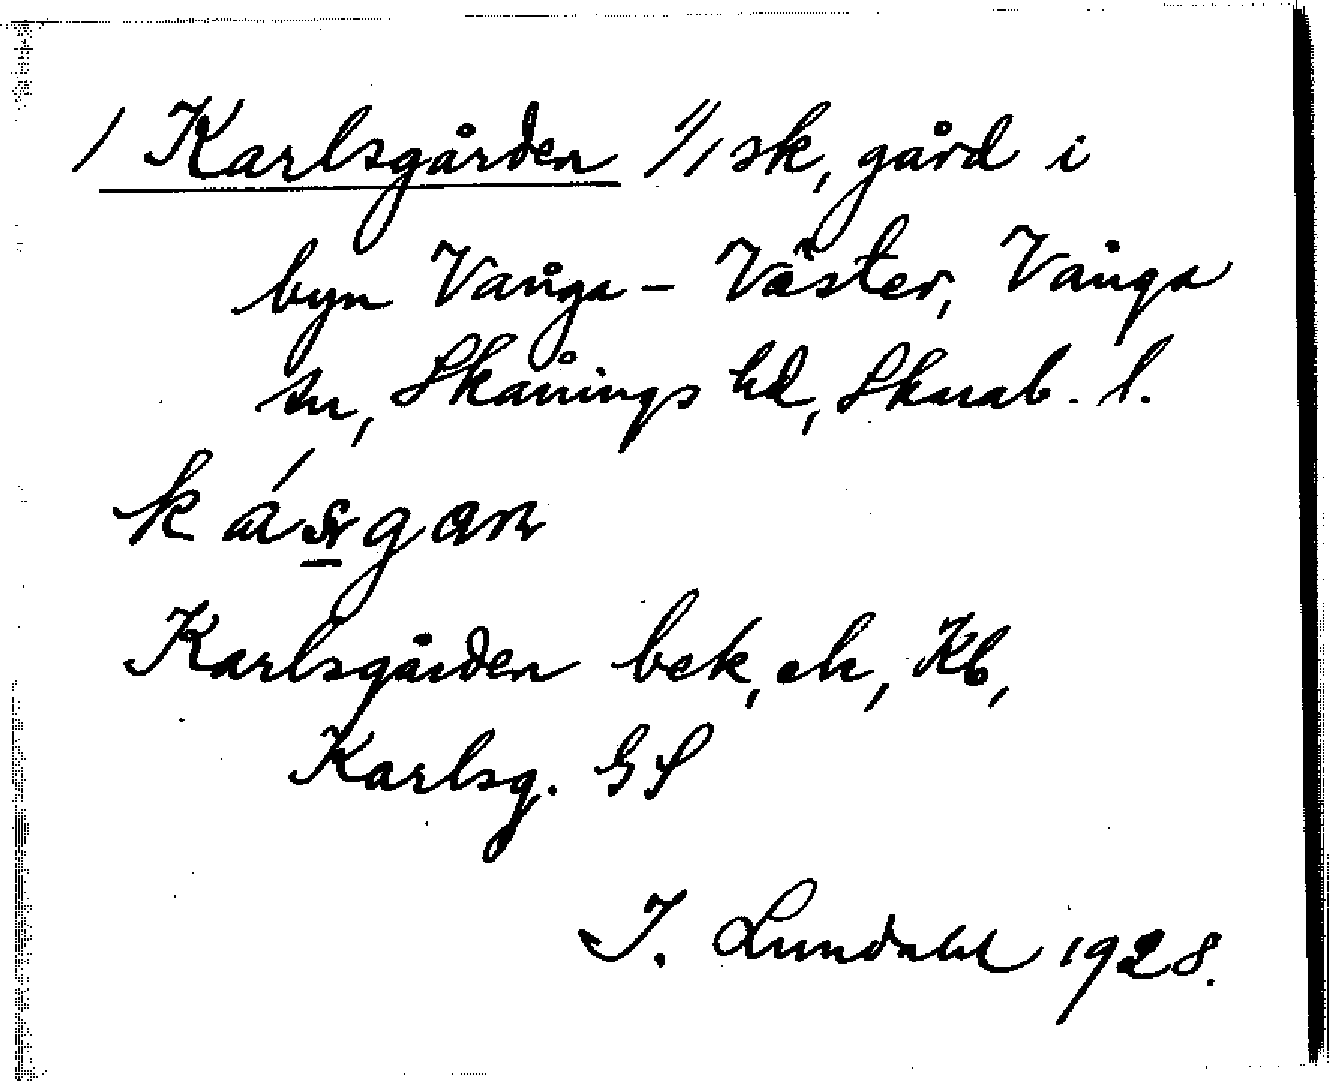 / Karlsgården 1/1 sk, gård i
byn Vånga - Väster, Vånga
sn, Skånings hd, Skarab. l.
Karlsgården bek, ek, Kb,
Karlsg. GS
I. Lundahl 1928.